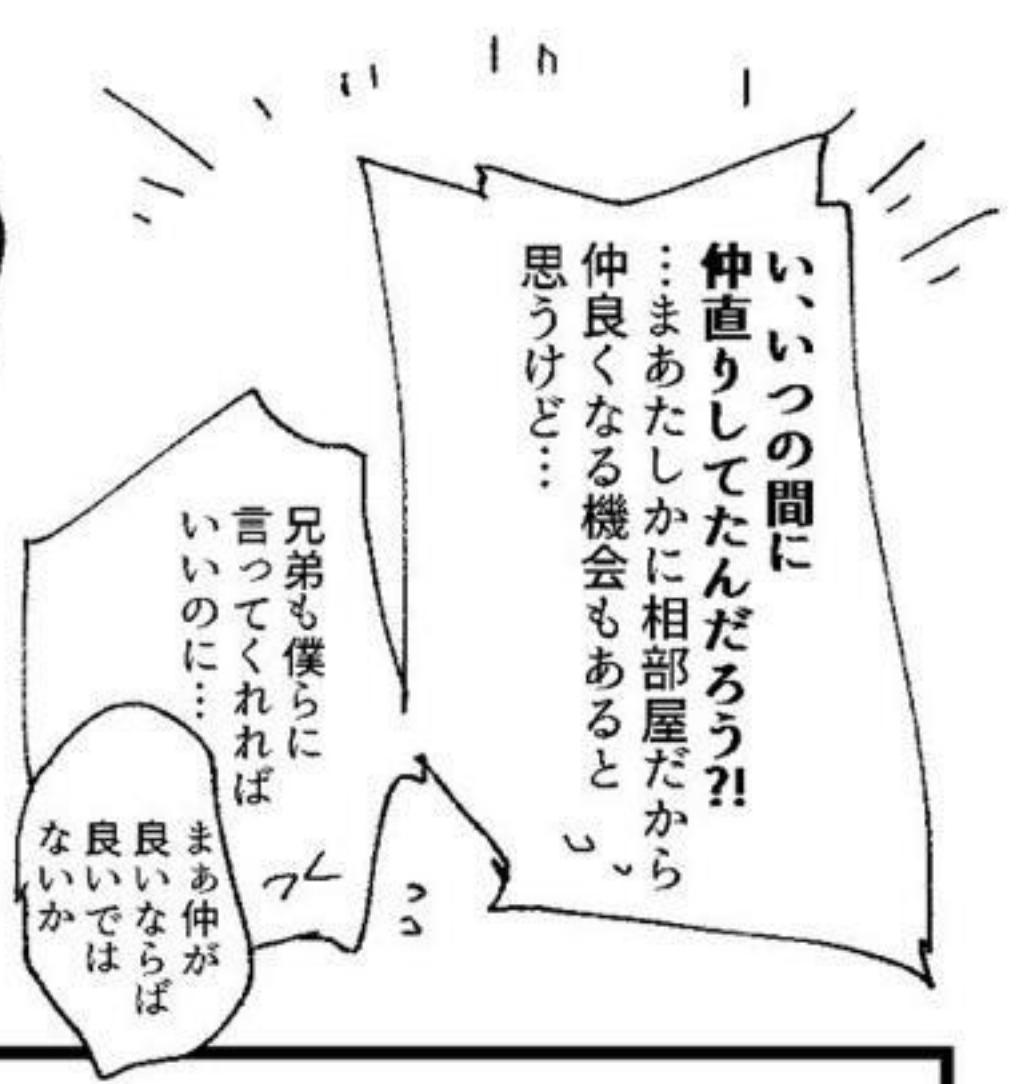 い、いつの間に
仲直りしてたんだろう?!
…まあたしかに相部屋だから
仲良くなる機会もあると
思うけど…
兄弟も僕らに
言ってくれれば
いいのに…
まぁ仲が
良いならば
良いでは
ないか